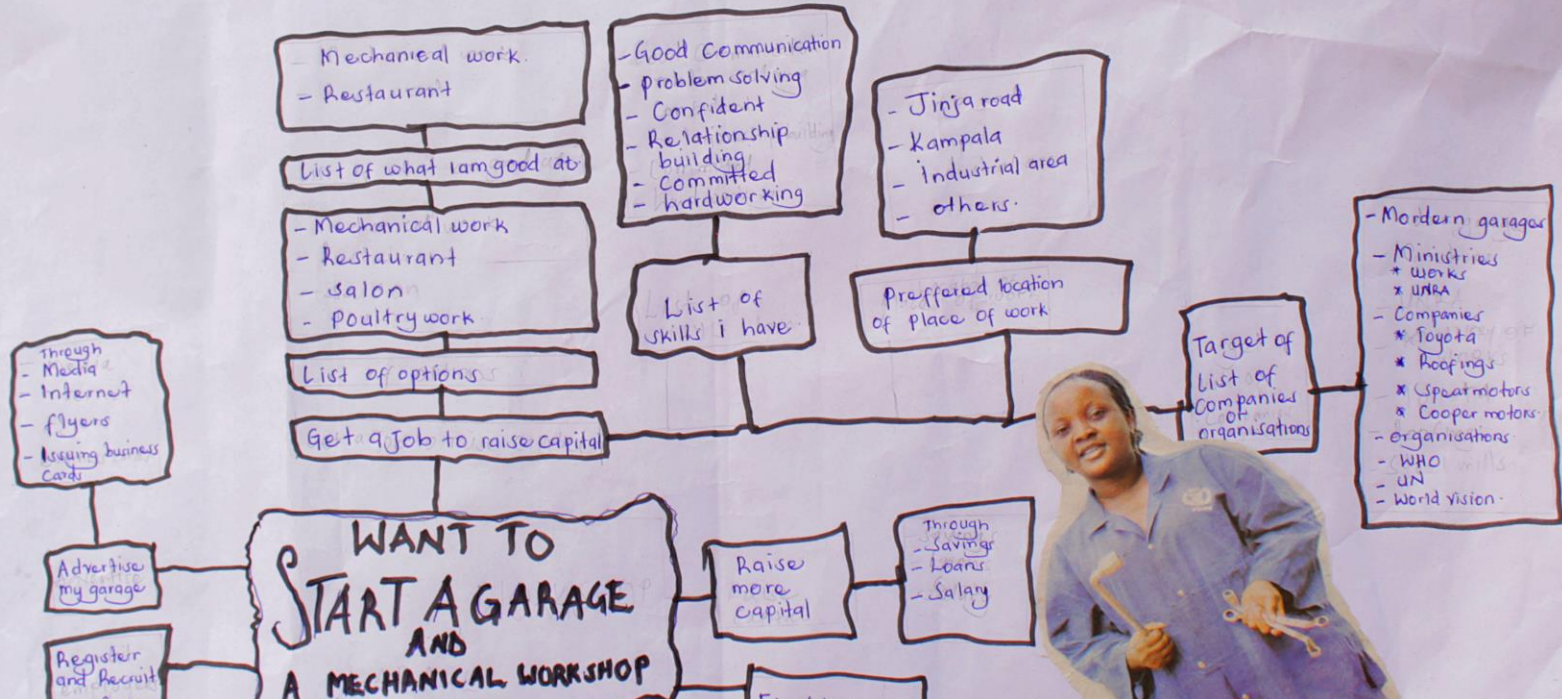 - Mechanical work.
- Restaurant
List of what I am good at
- Mechanical work
- Restaurant
- Salon
- Poultry work.
List of options
Get a Job to raise capital
- Good Communication
- problem solving
- Confident
- Relationship
building
- Committed
- hardworking
List of
skills i have
- Jinja road
- Kampala
- industrial area
- others.
Preffered location
of place of work
Target of
List of
companies
or
organisations
- Mordern garages
- Ministries
* works
* UNRA
- Companies
* Toyota
* Roofings
* Spearmotors
* Cooper motors.
- organisations
- WHO
- UN
- World vision.
Through
- Media
- Internet
- flyers
- Issuing business
cards
Advertise
my garage
Register
and Recruit
WANT TO
START A GARAGE
AND
A MECHANICAL WORKSHOP
Raise
more
capital
Through
- Savings
- Loans
- Salary